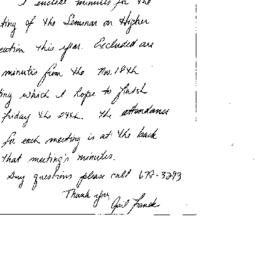 I enclose minutes for the
ting of the Seminar on Higher
cation this year. Excluded are
minutes from the Nov. 18th
ing which I hope to finish
Friday the 24th. The attendance
for each meeting is at the back
that meeting's minutes.
Any questions please call 672-3293
Thank you,
Gail Franck